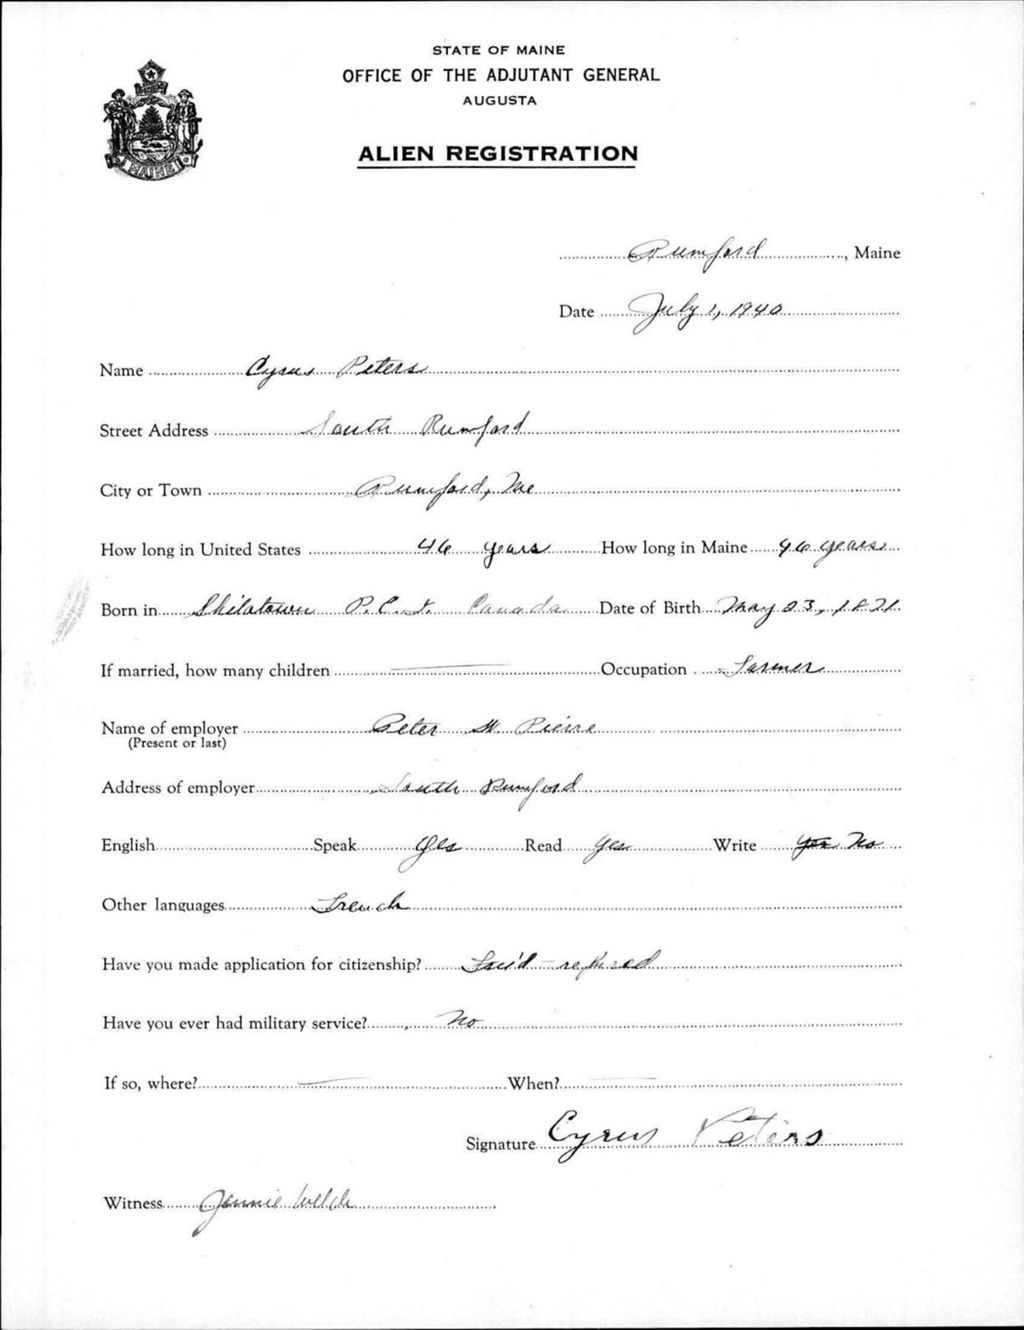 STATE OF MAINE
OFFICE OF THE ADJUTANT GENERAL
AUGUSTA
ALIEN REGISTRATION
MAINE
Rumford, Maine
Date July 1, 1940
Name Cyrus Peters
Street Address South Rumford
City or Town Rumford, Me
How long in United States 46 years How long in Maine 46 years
Born in P.E.I. Canada Date of Birth May 23, 1871
If married, how many children — Occupation Farmer
Name of employer Peter W. Pierre
(Present or last)
Address of employer South Rumford
English Speak Yes Read Yes Write Yes No
Other languages French
Have you made application for citizenship? refused
Have you ever had military service? No
If so, where? — When? —
Signature Cyrus Peters
Witness Jennie Welch